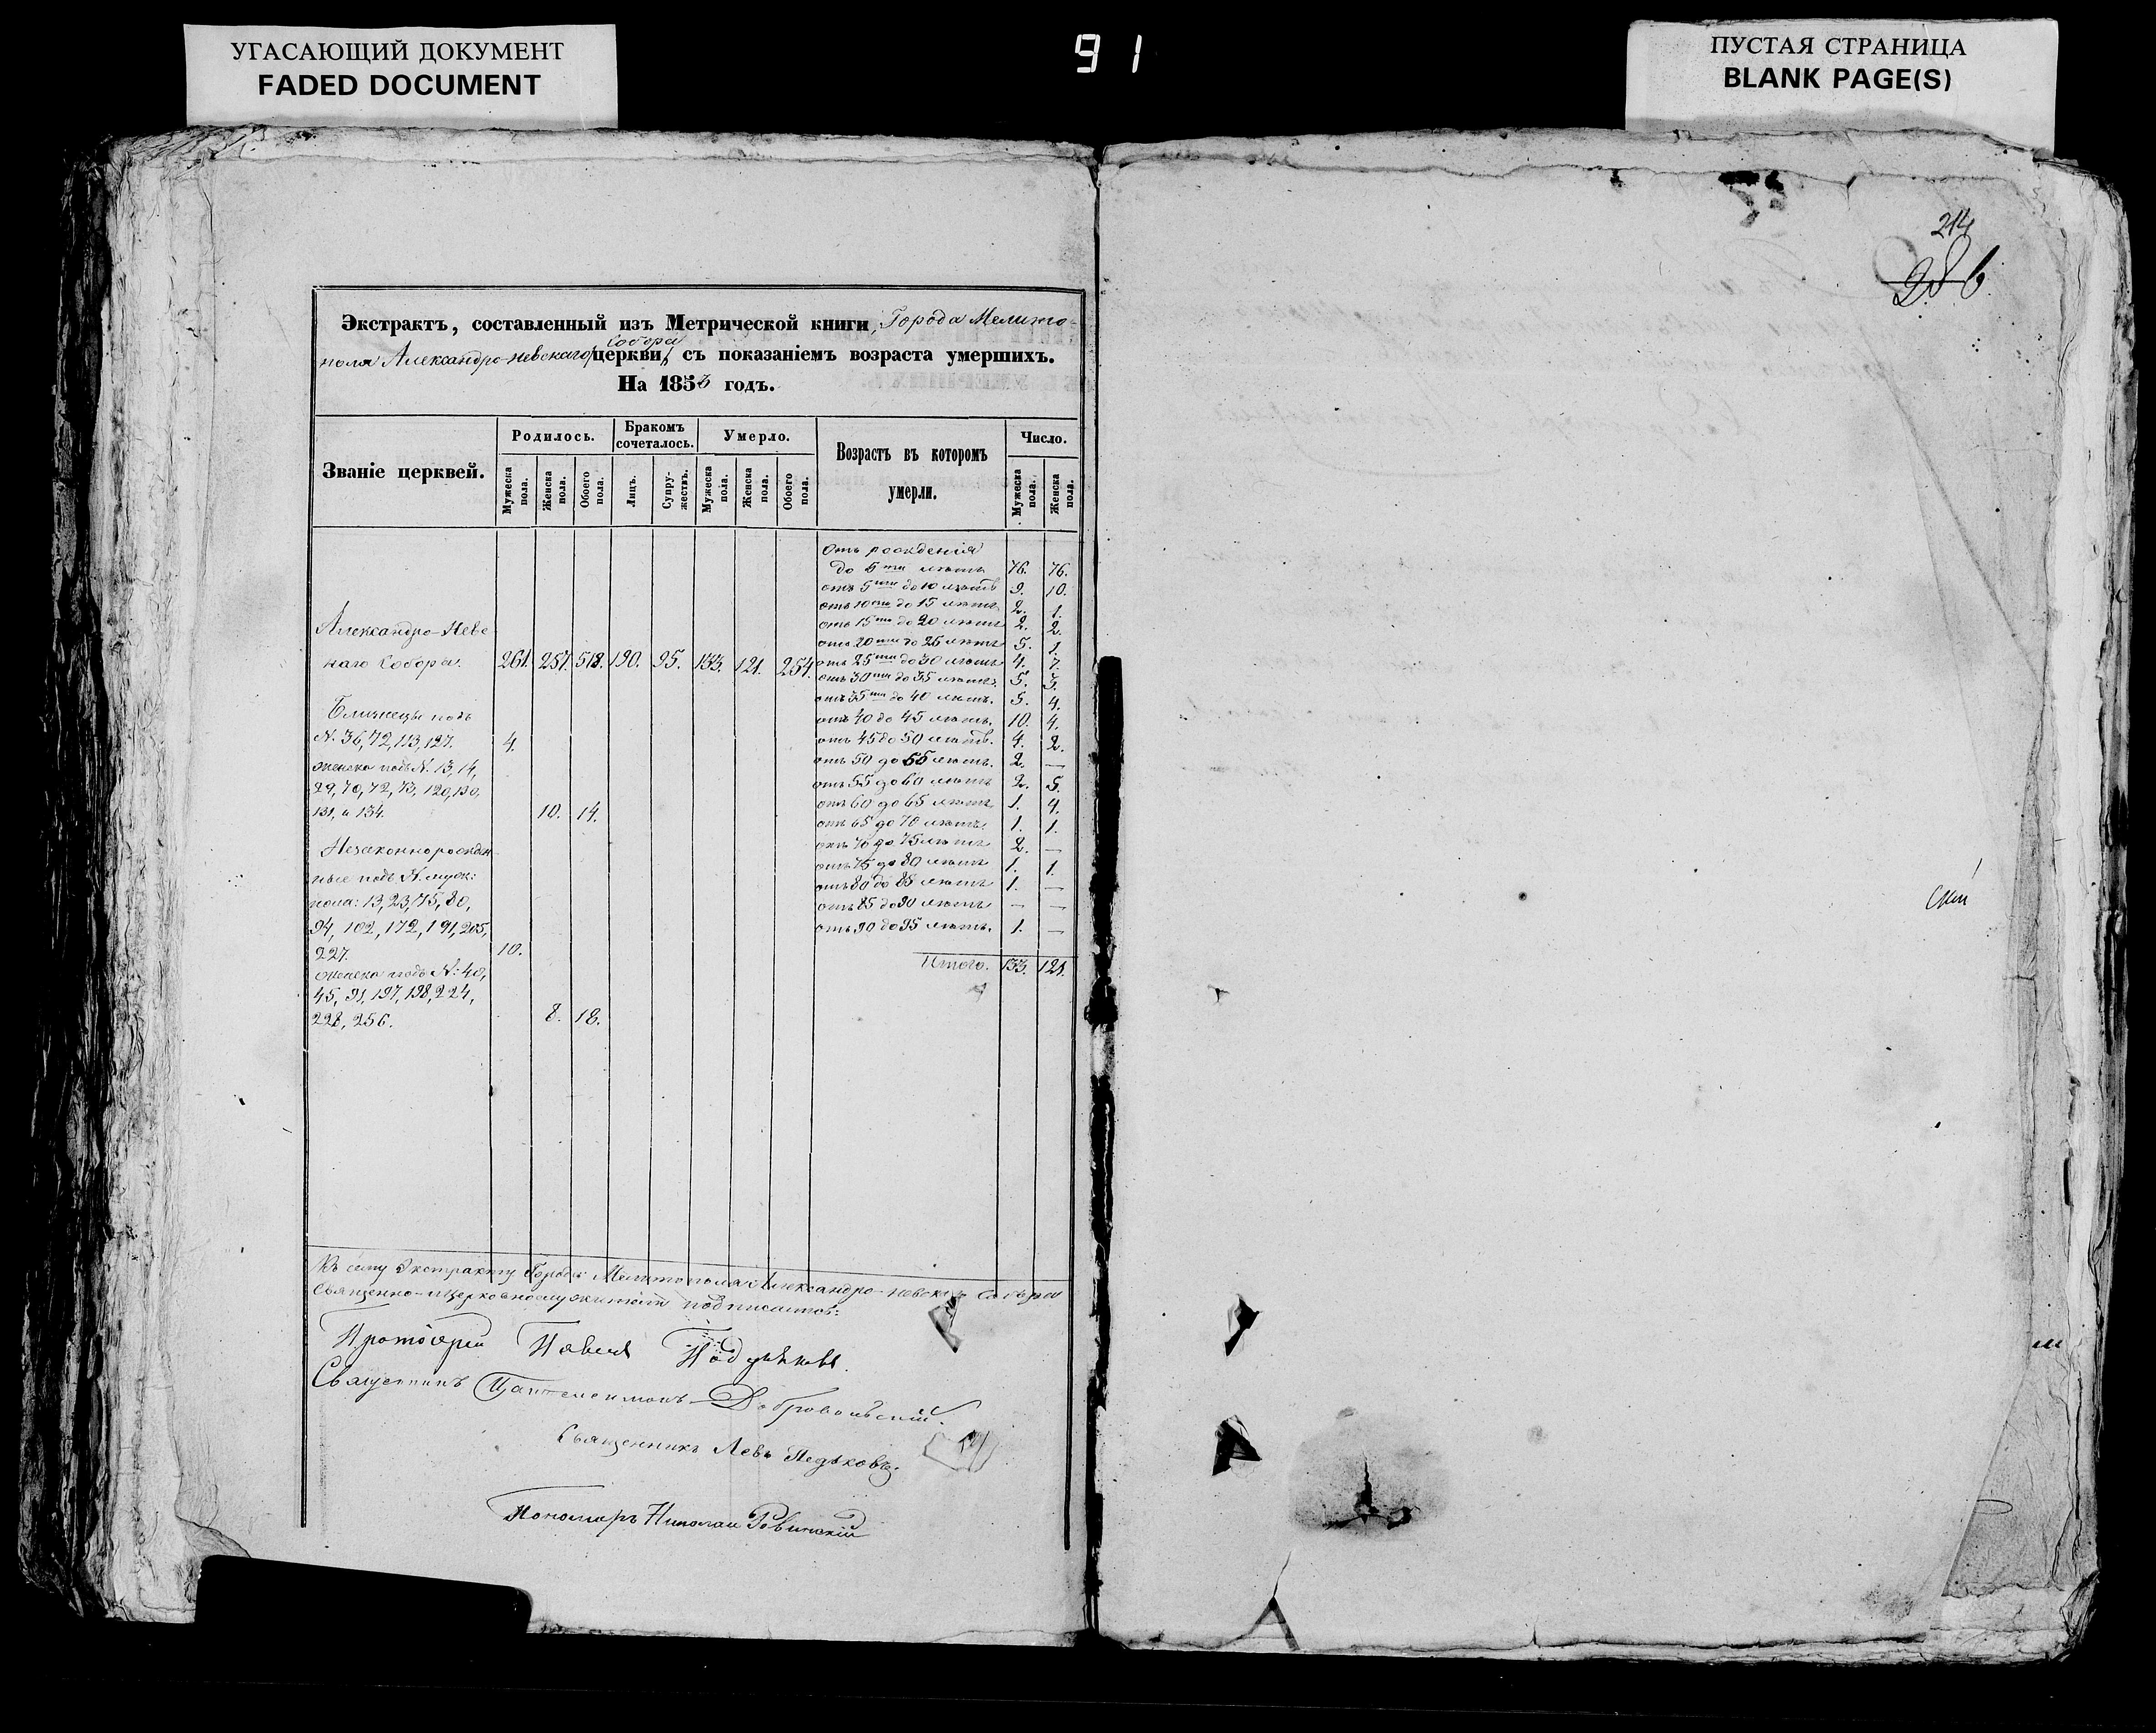 УГАСАЮЩИЙ ДОКУМЕНТ
FADED DOCUMENT
91
ПУСТАЯ СТРАНИЦА
BLANK PAGE(S)
214
286
Экстрактъ, составленный изъ Метрической книги, Города Мелито-
поля Александро-невскаго церкви, Собора съ показаніемъ возраста умершихъ.
На 1853 годъ.
Званіе церквей.
Родилось.
Бракомъ сочеталось.
Умерло.
Возрастъ въ которомъ умерли.
Число.
Мужеска пола.
Женска пола.
Обоего пола.
Лицъ.
Супружествъ.
Мужеска пола.
Женска пола.
Обоего пола.
Мужеска пола.
Женска пола.
Александро-Невс
каго Собора. 261. 257. 518. 190. 95. 133. 121. 254.
Близнецы подъ
N. 36, 72, 113, 127. 4.
женска подъ N. 13, 14,
29, 70, 72, 73, 120, 130,
131, и 134. 10. 14.
Незаконнорожден
ные подъ N. муж:
пола: 13, 23, 75, 80,
94, 102, 172, 191, 205,
227. 10.
женска подъ N: 40,
45, 91, 197, 198, 224,
228, 256. 8. 18.
Отъ рожденія
до 5ти лѣтъ 76. 76.
отъ 5ти до 10 лѣтъ 9. 10.
отъ 10ти до 15 лѣтъ 2. 1.
отъ 15ти до 20 лѣтъ 2. 2.
отъ 20ти до 25 лѣтъ 5. 1.
отъ 25ти до 30 лѣтъ 4. 7.
отъ 30ти до 35 лѣтъ. 5. 3.
отъ 35ти до 40 лѣтъ. 5. 4.
отъ 40 до 45 лѣтъ. 10. 4.
отъ 45 до 50 лѣтъ. 4. 2.
отъ 50 до 55 лѣтъ. 2. —
отъ 55 до 60 лѣтъ 2. 5.
отъ 60 до 65 лѣтъ 1. 4.
отъ 65 до 70 лѣтъ. 1. 1.
отъ 70 до 75 лѣтъ 2. —
отъ 75 до 80 лѣтъ 1. 1.
отъ 80 до 85 лѣтъ 1. —
отъ 85 до 90 лѣтъ — —
отъ 90 до 95 лѣтъ. 1. —
Итого. 133. 121.
Къ сему Экстракту Города Мелитополя Александро-невскаго Собора
Священно-церковнослужители подписались:
Протоіерей Павелъ
Священникъ Пантелеимонъ Добровольскій.
Священникъ Левъ Педьковъ.
Пономарь Николай Ровинскій